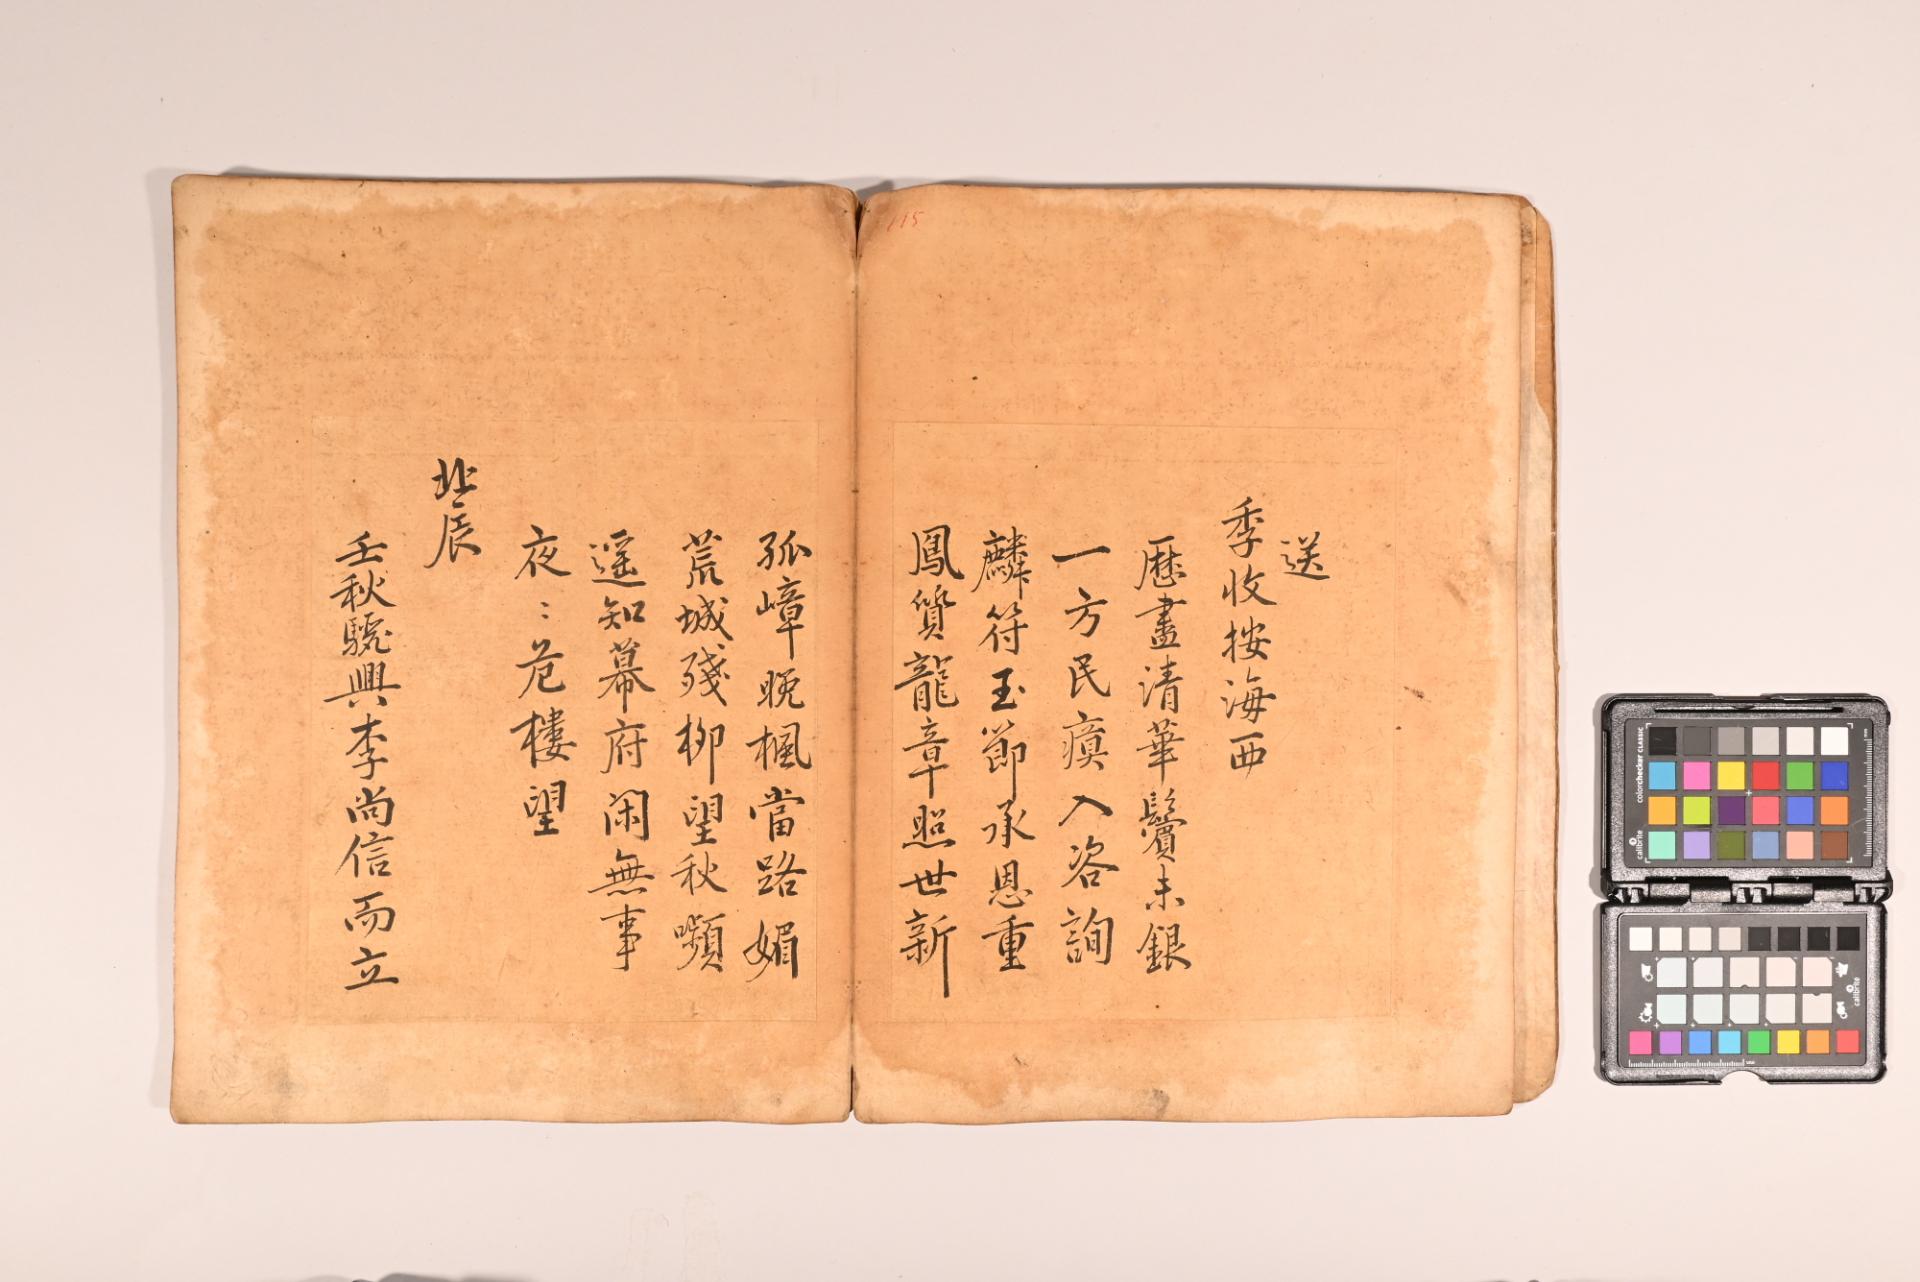 送
季收按海西
歷盡清華鬢未銀
一方民瘼入咨詢
麟符玉節承恩重
鳳質龍章照世新
孤嶂晚楓當路媚
荒城殘柳望秋嚬
遥知幕府閑無事
夜〻危樓望
北辰
壬秋驪興李尚信而立
115
colorchecker CLASSIC
calibrite
calibrite